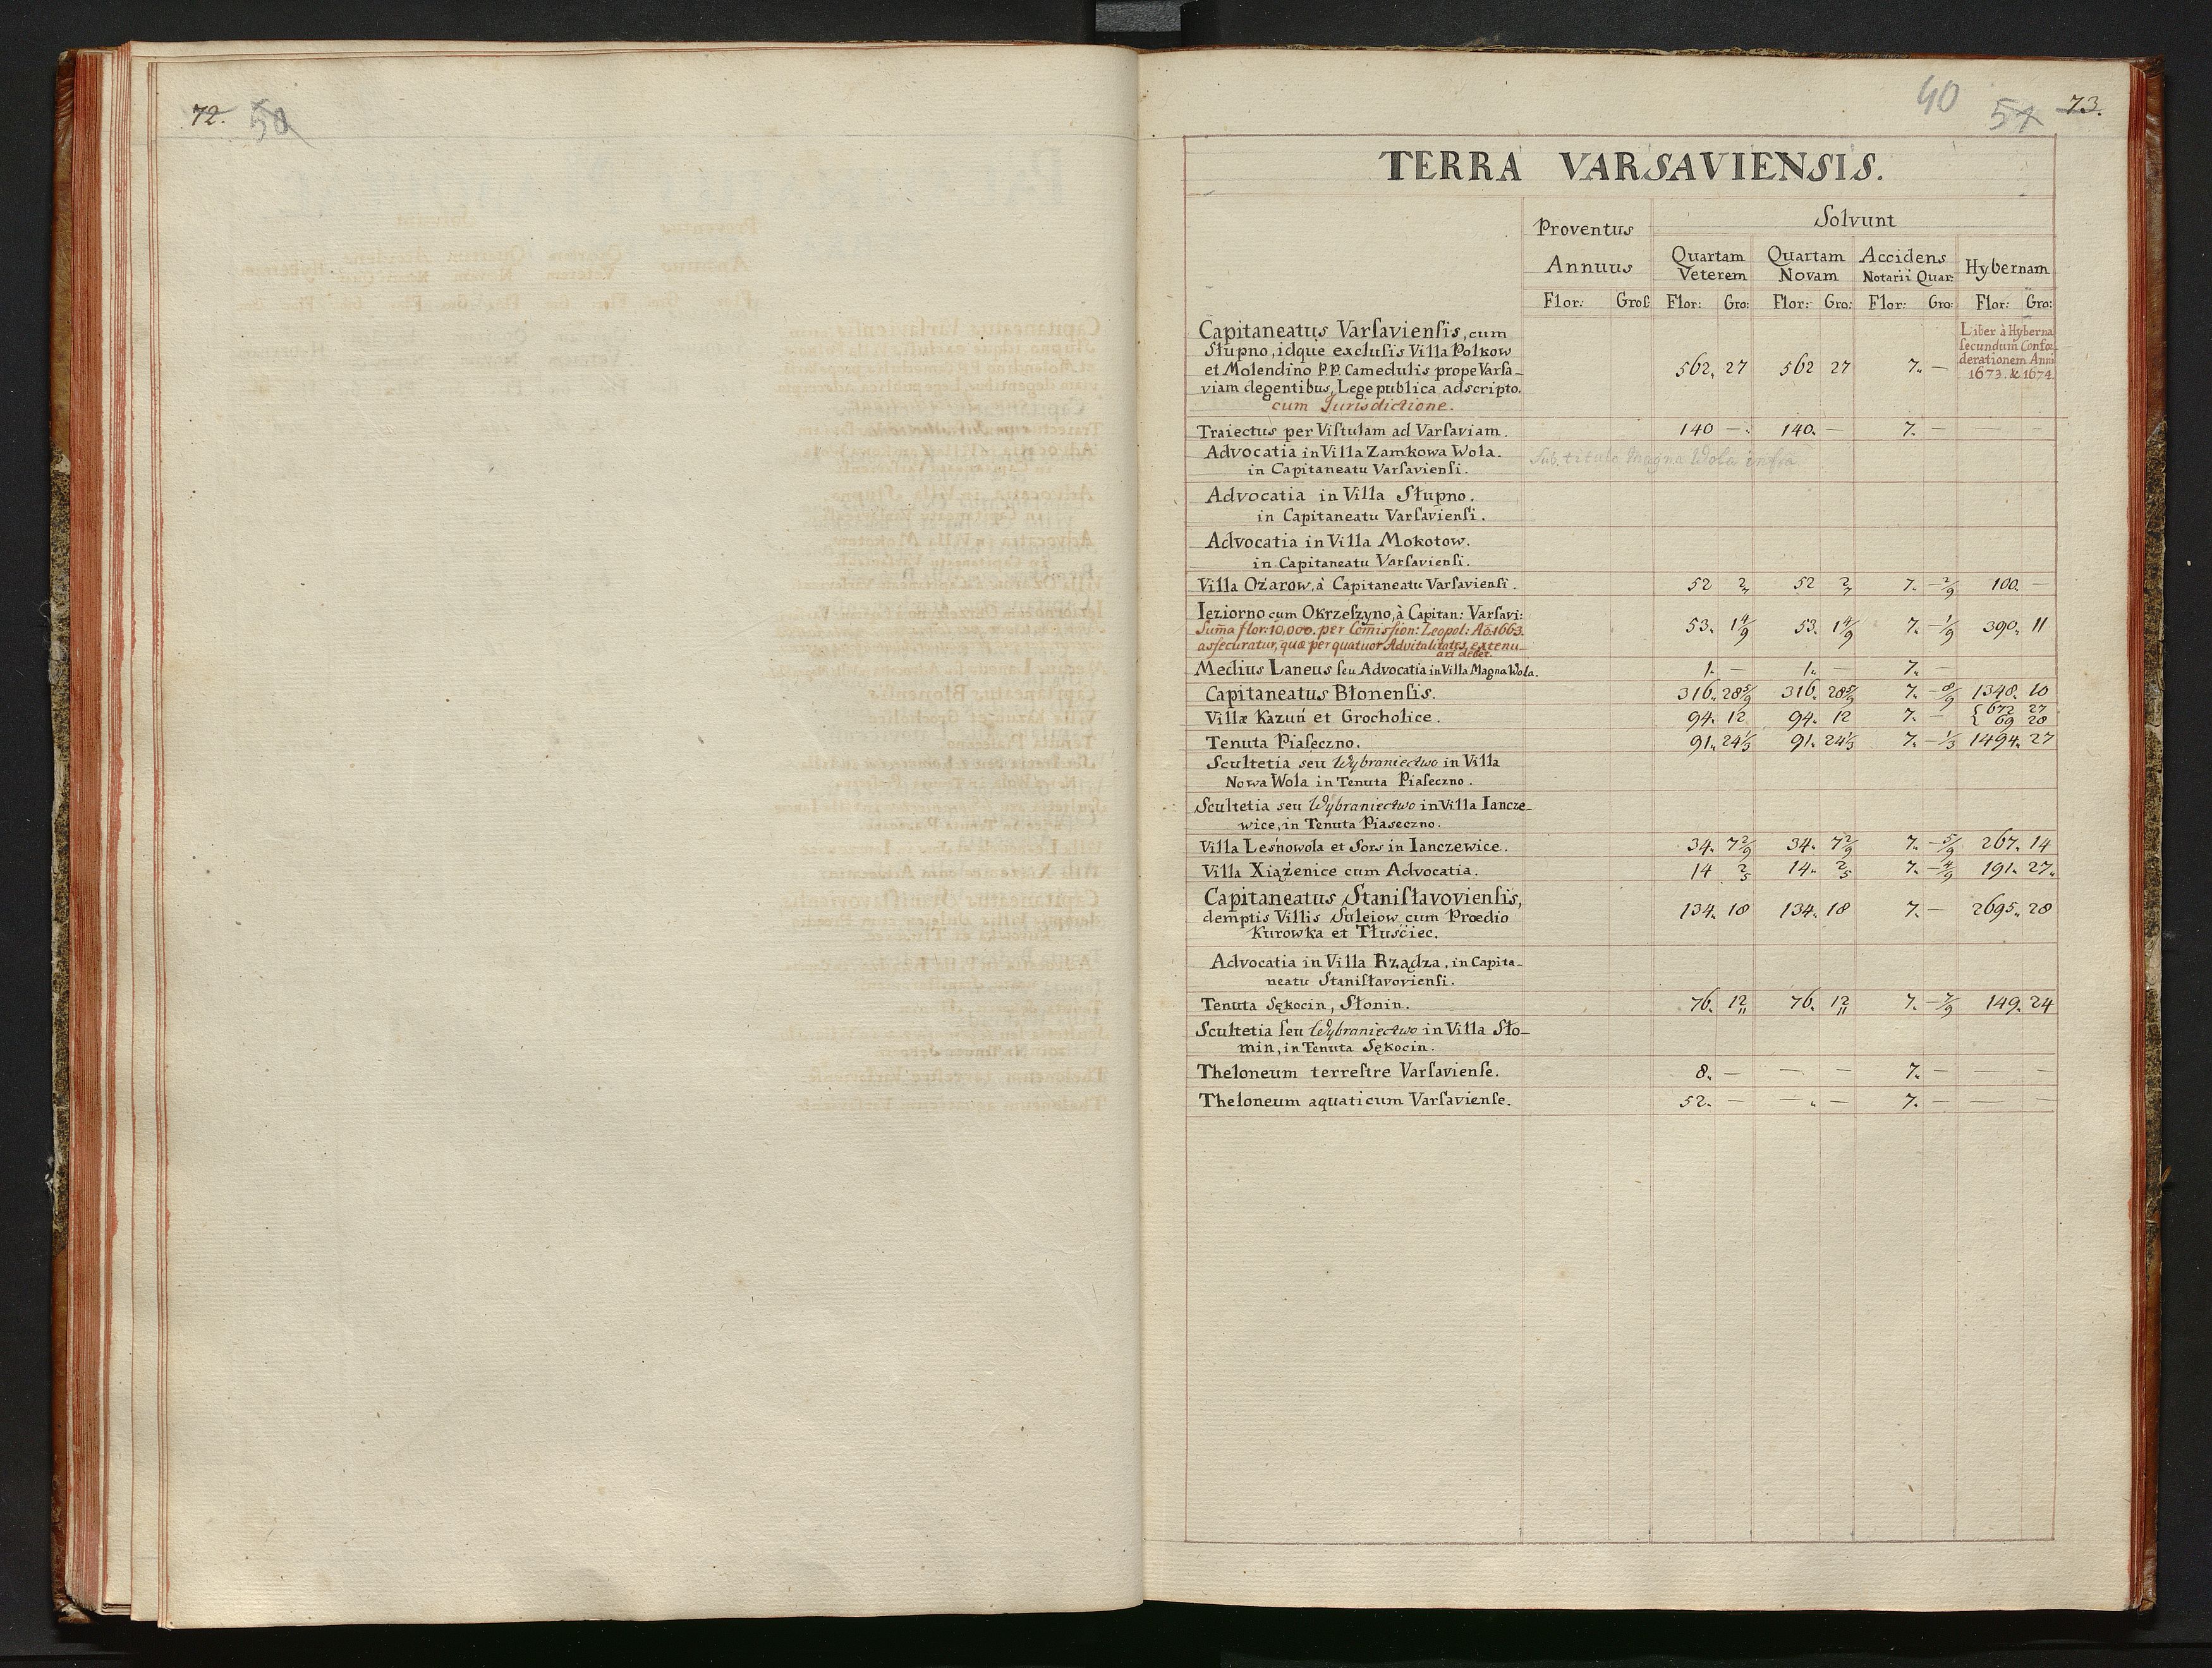 72. 50
40 51 73.
TERRA VARSAVIENSIS.
Proventus Annuus
Solvunt
Quartam Veterem Quartam Novam Accidens Notarii Quar: Hybernam
Flor: Groſ: Flor: Gro: Flor: Gro: Flor: Gro: Flor: Gro:
Capitaneatus Varſavienſis, cum
Słupno, idque excluſis Villa Polkow
et Molendino P.P. Camedulis prope Varſa-
viam degentibus, Lege publica adscripto. 562. 27 562 27 7. —
cum Jurisdictione.
Liber à Hyberna
ſecundum Confœ-
derationem Anni
1673. & 1674.
Traiectus per Viſtulam ad Varſaviam. 140 — 140. — 7. — — —
Advocatia in Villa Zamkowa Wola.
in Capitaneatu Varſavienſi. Sub titulo Magna Wola infra
Advocatia in Villa Słupno.
in Capitaneatu Varſavienſi.
Advocatia in Villa Mokotow.
in Capitaneatu Varſavienſi.
Villa Ożarow, à Capitaneatu Varſavienſi. 52 2/3 52 2/3 7. — 2/9 100. —
Ieziorno cum Okrzeſzyno, à Capitan: Varſavi: 53. 1 4/9 53. 1 4/9 7. — 1/9 390. 11
Sum̃a flor: 10,000. per Com̃iſsion: Leopol: Aõ. 1663.
aſsecuratur, quæ per quatuor Advitalitates extenu-
ari debet.
Medius Laneus ſeu Advocatia in Villa Magna Wola. 1. — 1. — 7. —
Capitaneatus Błonenſis. 316. 28 5/9 316. 28 5/9 7. — 8/9 1348. 10
Villæ Kazuń et Grocholice. 94. 12 94. 12 7. — { 672 27
{ 69 28
Tenuta Piaſeczno. 91. 24 1/3 91. 24 1/3 7. — 1/3 1494. 27
Scultetia seu Wybraniectwo in Villa
Nowa Wola in Tenuta Piaſeczno.
Scultetia seu Wybraniectwo in Villa Iancze-
wice, in Tenuta Piaseczno.
Villa Leśnowola et Sors in Ianczewice. 34. 7 2/9 34. 7 2/9 7. — 5/9 267. 14
Villa Xiążenice cum Advocatia. 14 2/5 14. 2/5 7. — 4/9 191. 27.
Capitaneatus Staniſłavovienſis,
demptis Villis Suleiow cum Prœdio 134. 18 134. 18 7. — 2695. 28
Kurowka et Tłuściec.
Advocatia in Villa Rządza, in Capita-
neatu Staniſłavovienſi.
Tenuta Sękocin, Słonin. 76. 12 76. 12 7. — 7/9 149. 24
Scultetia ſeu Wybraniectwo in Villa Sło-
min, in Tenuta Sękocin.
Theloneum terreſtre Varſavienſe. 8. — — — 7. — — —
Theloneum aquaticum Varſavienſe. 52. — — — 7. — — —